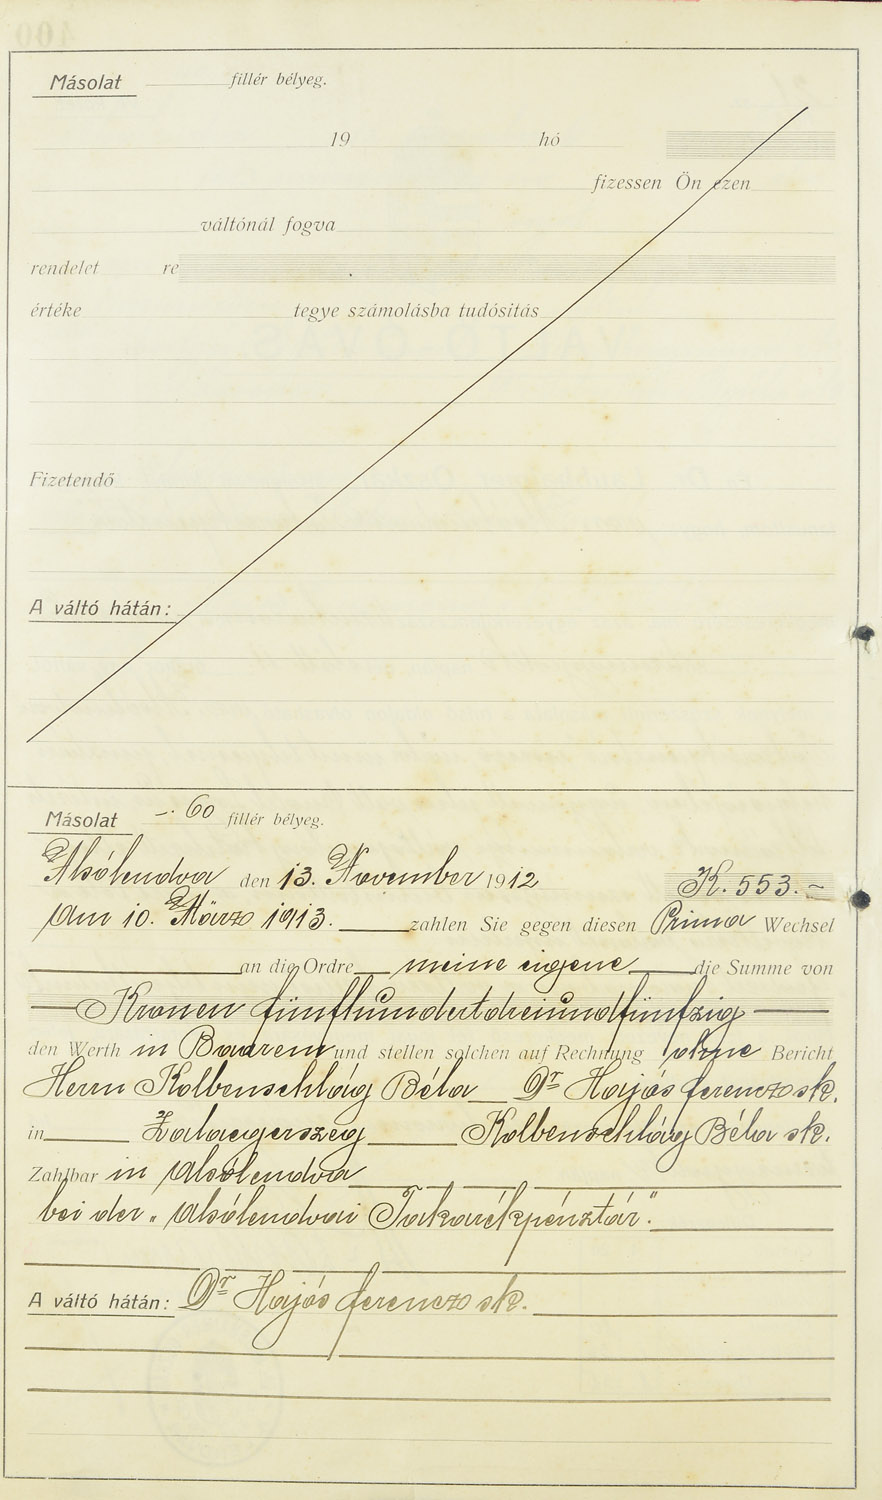 Másolat fillér bélyeg.
19 hó
fizessen Ön ezen
váltónál fogva
rendelet re
értéke tegye számolásba tudósitás
Fizetendő
A váltó hátán:
Másolat -. 60 fillér bélyeg.
Alsólendva den 13. November 1912 K. 553.-
Am 10. März 1913. zahlen Sie gegen diesen Prima Wechsel
an die Ordre meine eigene die Summe von
Kronen fünfhundertdreiundfünfzig
den Werth in Baarem und stellen solchen auf Rechnung ohne Bericht
Herrn Kolbenschlág Béla Dr Hajós Ferencz sk.
in Zalaegerszeg Kolbenschlág Béla sk.
Zahlbar in Alsólendva
bei der „Alsólendvai Takarékpénztár."
A váltó hátán: Dr Hajós Ferencz sk.